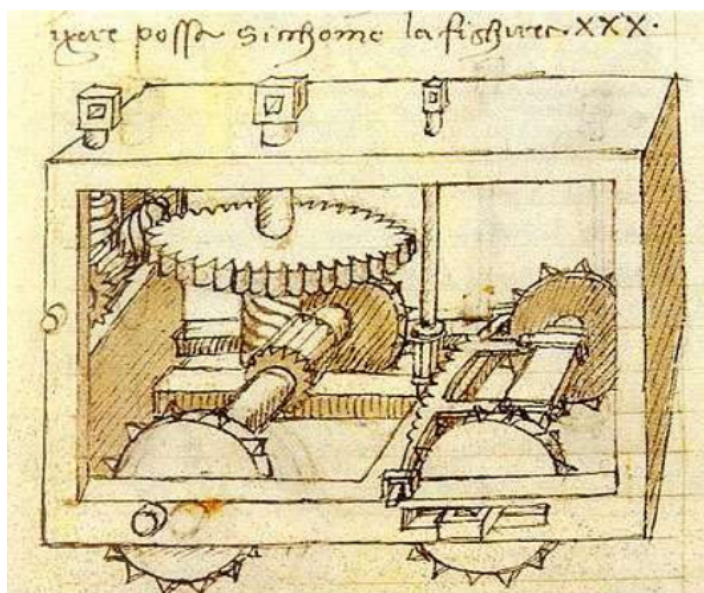 possa sicchome la fighura XXX.